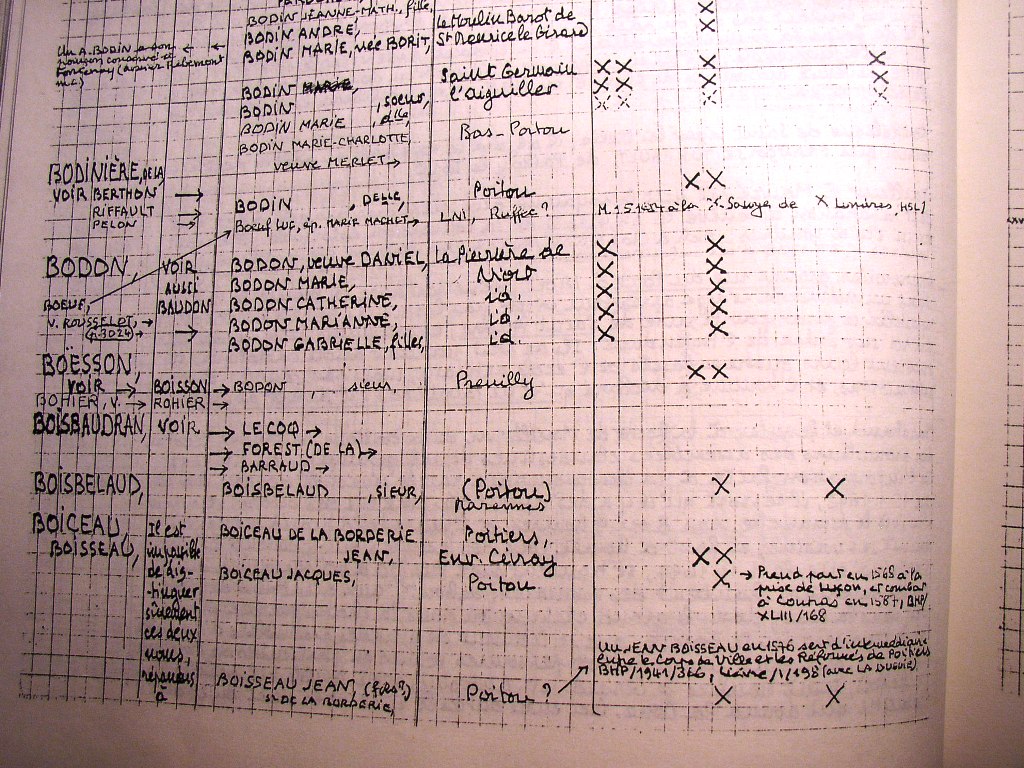 BODIN JEANNE-MATH., fille,
BODIN ANDRÉ, le Moulin Barot de
BODIN MARIE, née BORIT, St Maurice le Girard
Un A. BODIN a son
conservé à
Fontenay
Saint Germain
BODIN MARIE, l'aiguiller
BODIN , soeur,
BODIN MARIE , dlle
BODIN MARIE-CHARLOTTE, Bas-Poitou
veuve MERLET →
BODINIÈRE, DE LA
VOIR BERTHON → BODIN , DELLE, Poitou
RIFFAULT → Boeuf LUC, ép. MARIE MACHET → LNI, Ruffec? M. 1 5 à la Savoye de Londres, HSL/
PELON →
BODON, VOIR BODON, veuve DANIEL, la Pierrière de
AUSSI BODON MARIE, Niort
BOEUF, BAUDON BODON CATHERINE, id.
V. ROUSSELOT, → BODON MARIANNE, id.
G.3024 → → BODON GABRIELLE, filles, id.
BOËSSON,
VOIR → BOISSON → BODON , sieur, Preuilly
BOHIER, V. → ROHIER →
BOISBAUDRAN, VOIR → LE COQ →
→ FOREST (DE LA) →
→ BARRAUD →
BOISBELAUD, BOISBELAUD , SIEUR, (Poitou)
Marennes
BOICEAU, Il est BOICEAU DE LA BORDERIE Poitiers,
BOISSEAU, impossible JEAN, Env. Civray
de dis- BOICEAU JACQUES, Poitou → Prend part en 1568 à la
-tinguer prise de Luçon, et combat
sûrement à Coutras en 1587, BHP/
ces deux XLIII/168
noms, Un JEAN BOISSEAU en 1576 sert d'intermédiaire
entre le Corps de Ville et les Réformés de Poitiers
BHP/1941/366, Lièvre/1/198 (avec LA DUGUIE)
à BOISSEAU JEAN, (fils?) Poitou ?
sr DE LA BORDERIE,